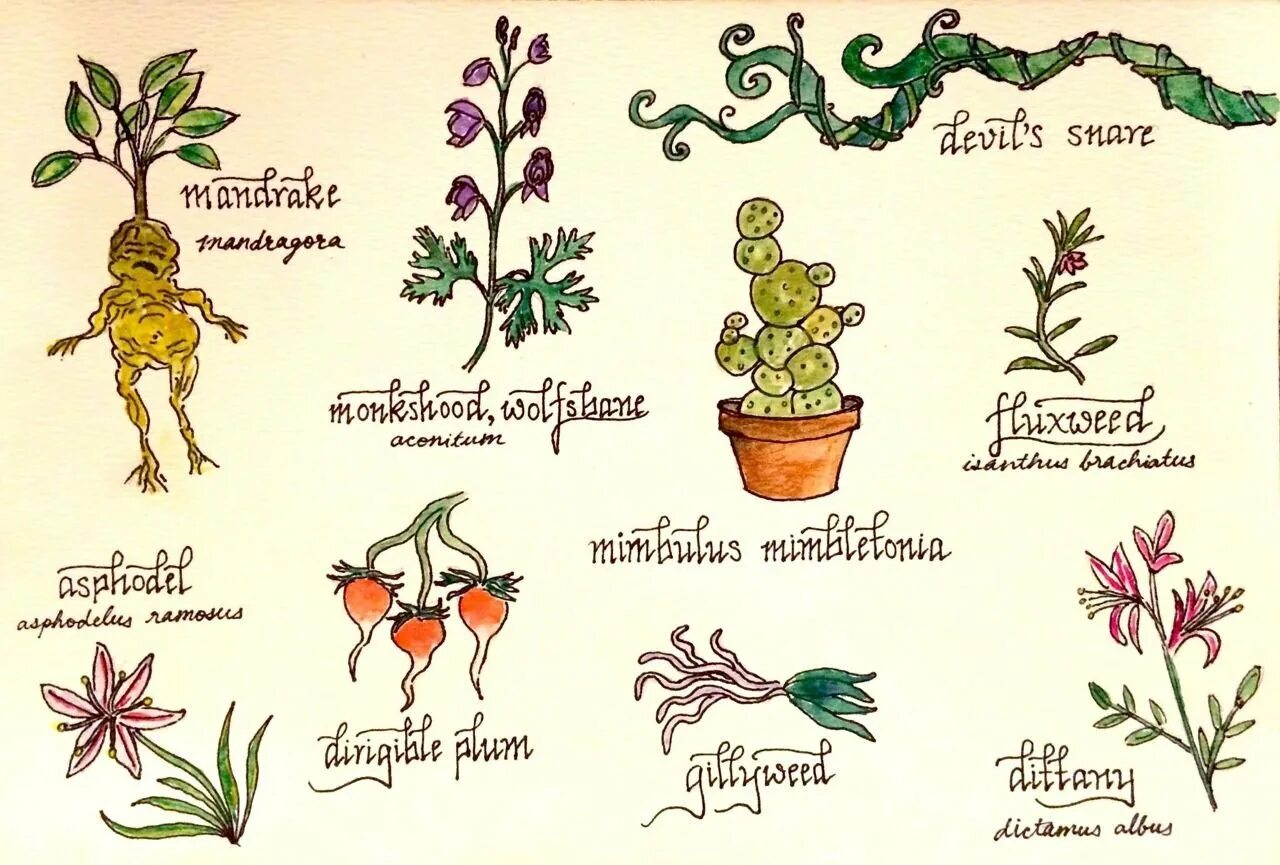 devil's snare
mandrake
mandragora
monkshood, wolfsbane
aconitum
fluxweed
isanthus brachiatus
mimbulus mimbletonia
asphodel
asphodelus ramosus
dirigible plum
gillyweed
dittany
dictamus albus